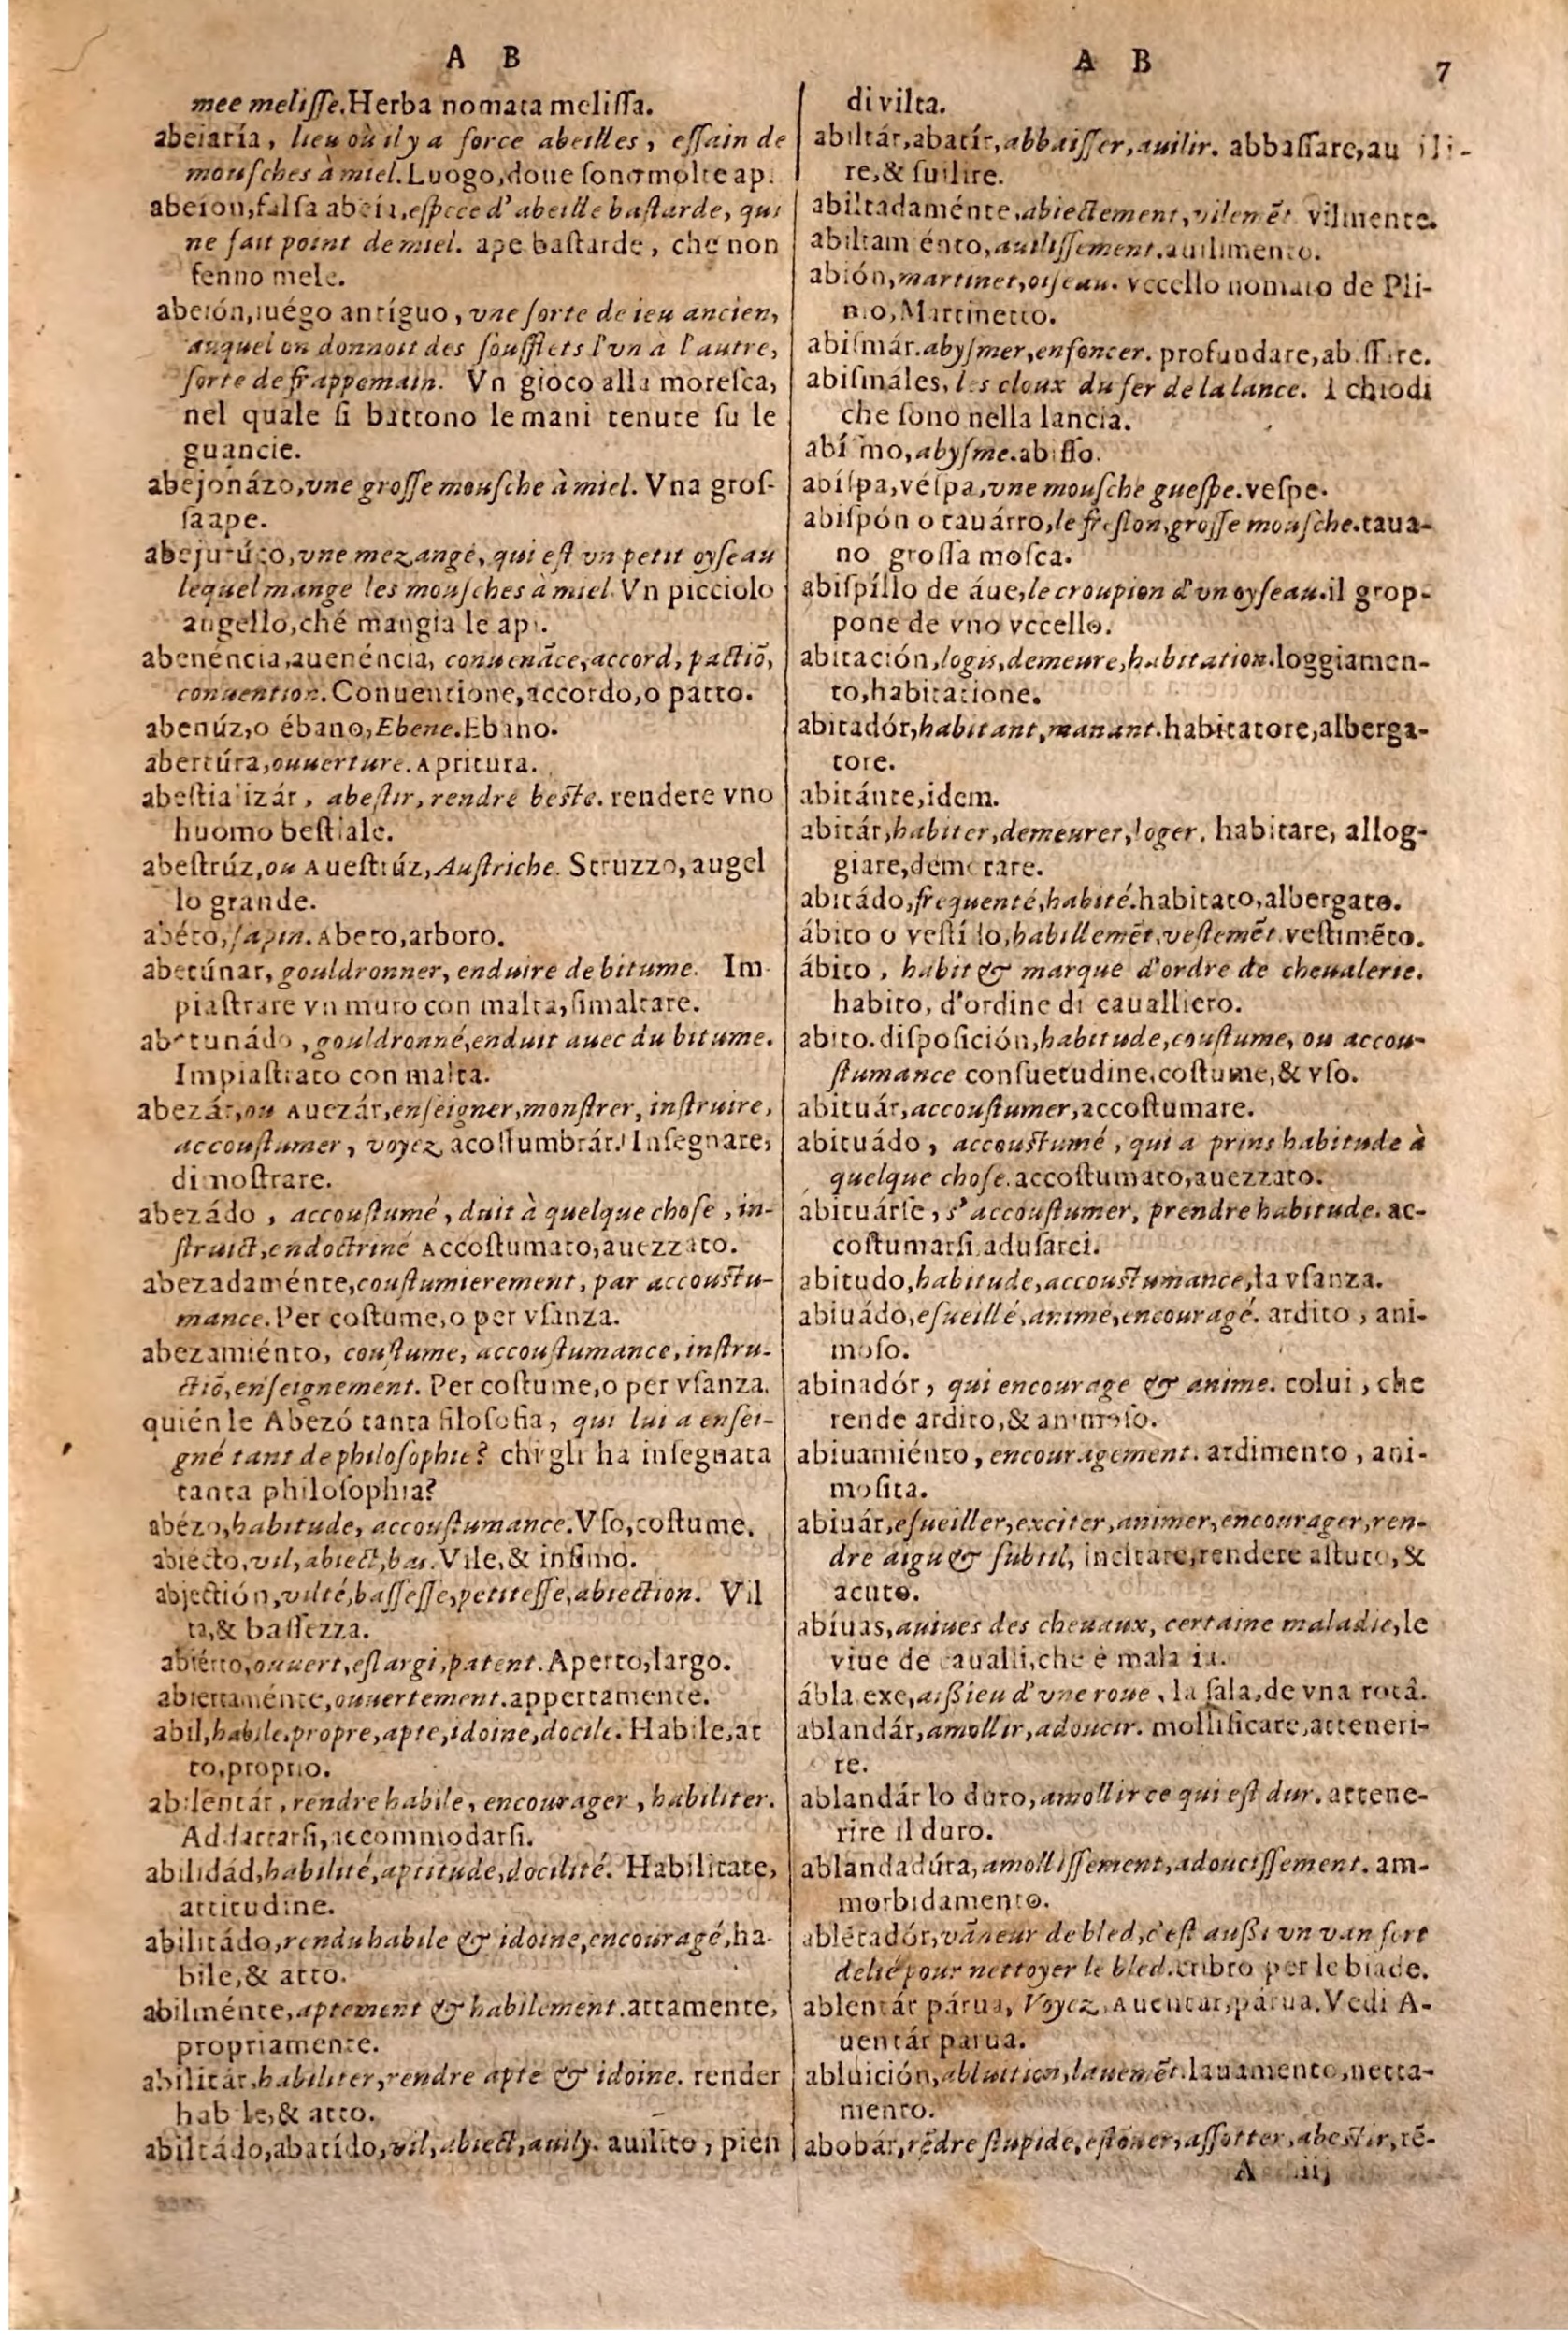 A B
mee melisse.Herba nomata melissa.
abeiaría, lieu où il y a force abeilles, essain de
mousches à miel.Luogo,doue sono molte api.
abeion,falsa abeia,espece d'abeille bastarde, qui
ne fait point de miel. ape bastarde, che non
fenno mele.
abeión,iuégo antíguo, vne sorte de ieu ancien,
auquel on donnoit des soufflets l'vn à l'autre,
sorte de frappemain. Vn gioco alla moresca,
nel quale si battono le mani tenute su le
guancie.
abejonázo,vne grosse mousche à miel. Vna gros-
sa ape.
abejurúco,vne mezange, qui est vn petit oyseau
lequel mange les mousches à miel. Vn picciolo
augello,ché mangia le api.
abenéncia,auenéncia, conuenãce,accord, pactiõ,
conuention.Conuentione,accordo,o patto.
abenúz,o ébano,Ebene.Ebano.
abertúra,ouuerture.Apritura.
abestializár, abestir, rendre beste. rendere vno
huomo bestiale.
abestrúz,ou Auestrúz,Austriche. Struzzo,augel
lo grande.
abéto,sapin.Abeto,arboro.
abetúnar, gouldronner, enduire de bitume. Im-
piastrare vn muro con malta,simaltare.
abetunádo,gouldronné,enduit auec du bitume.
Impiastrato con malta.
abezár,ou Auezár,enseigner,monstrer, instruire,
accoustumer, voyez acostumbrár. Insegnare,
dimostrare.
abezádo, accoustumé, duit à quelque chose, in-
struict,endoctriné Accostumato,auezzato.
abezadaménte,coustumierement, par accoustu-
mance.Per costume,o per vsanza.
abezamiénto, coustume, accoustumance, instru-
ctiõ,enseignement. Per costume,o per vsanza.
quién le Abezó tanta filosofia, qui lui a ensei-
gné tant de philosophie? chi gli ha insegnata
tanta philosophia?
abézo,habitude, accoustumance.Vso,costume.
abiecto,vil,abiect,bas.Vile,& infimo.
abjectión,vilté,bassesse,petitesse,abiection. Vil
ta,& bassezza.
abiérto,ouuert,eslargi,patent.Aperto,largo.
abiertaménte,ouuertement.appertamente.
abil,habile,propre,apte,idoine,docile. Habile,at
to,proprio.
abilentár, rendre habile, encourager, habiliter.
Addattarsi,accommodarsi.
abilidád,habilité,aptitude,docilité. Habilitate,
attitudine.
abilitádo,rendu habile & idoine,encouragé,ha-
bile,& atto.
abilménte,aptement & habilement.attamente,
propriamente.
abilitár,habiliter,rendre apte & idoine. render
habile,& atto.
abiltádo,abatído,vil,abiect,auily. auilito, pien
A B 7
di vilta.
abiltár,abatír,abbaisser,auilir. abbassare,auili-
re,& suilire.
abiltadaménte,abiectement,vilemẽt vilmente.
abiltamiénto,auilissement.auilimento.
abión,martinet,oiseau. vccello nomato de Pli-
nio,Martinetto.
abismár.abysmer,enfoncer. profundare,abissare.
abismáles, les cloux du fer de la lance. I chiodi
che sono nella lancia.
abísmo,abysme.abisso.
abíspa,véspa,vne mousche guespe.vespe.
abispón o tauárro,le freslon,grosse mousche.taua-
no grossa mosca.
abispíllo de áue,le croupion d'vn oyseau.il grop-
pone de vno vccello.
abitación,logis,demeure,habitation.loggiamen-
to,habitatione.
abitadór,habitant,manant.habitatore,alberga-
tore.
abitánte,idem.
abitár,habiter,demeurer,loger. habitare, allog-
giare,demorare.
abitádo,frequenté,habité.habitato,albergato.
ábito o vestído,habillemẽt,vestemẽt.vestimẽto.
ábito, habit & marque d'ordre de cheualerie.
habito, d'ordine di caualliero.
abito.disposición,habitude,coustume, ou accou-
stumance consuetudine,costume,& vso.
abituár,accoustumer,accostumare.
abituádo, accoustumé, qui a prins habitude à
quelque chose.accostumato,auezzato.
abituárse, s'accoustumer, prendre habitude. ac-
costumarsi adusarci.
abitudo,habitude,accoustumance,la vsanza.
abiuádo,esueillé,animé,encouragé. ardito, ani-
moso.
abinadór, qui encourage & anime. colui, che
rende ardito,& animoso.
abiuamiénto, encouragement. ardimento, ani-
mosita.
abiuár,esueiller,exciter,animer,encourager,ren-
dre aigu & subtil, incitare,rendere astuto,&
acuto.
abíuas,auiues des cheuaux, certaine maladie,le
viue de caualli,che è mala ia.
ábla exe,aißieu d'vne roue, la sala,de vna rota.
ablandár,amollir,adoucir. mollificare,atteneri-
re.
ablandár lo duro,amollir ce qui est dur. attene-
rire il duro.
ablandadúra,amollissement,adoucissement. am-
morbidamento.
ablétadór,vãneur de bled,c'est außi vn van fort
delié pour nettoyer le bled.cribro per le biade.
ablentár párua, Voyez,Auentar,párua.Vedi A-
uentár parua.
abluición,abluition,lauemẽt.lauamento,netta-
mento.
abobár,rẽdre stupide,estõner,assotter,abestir,rẽ-
A iij